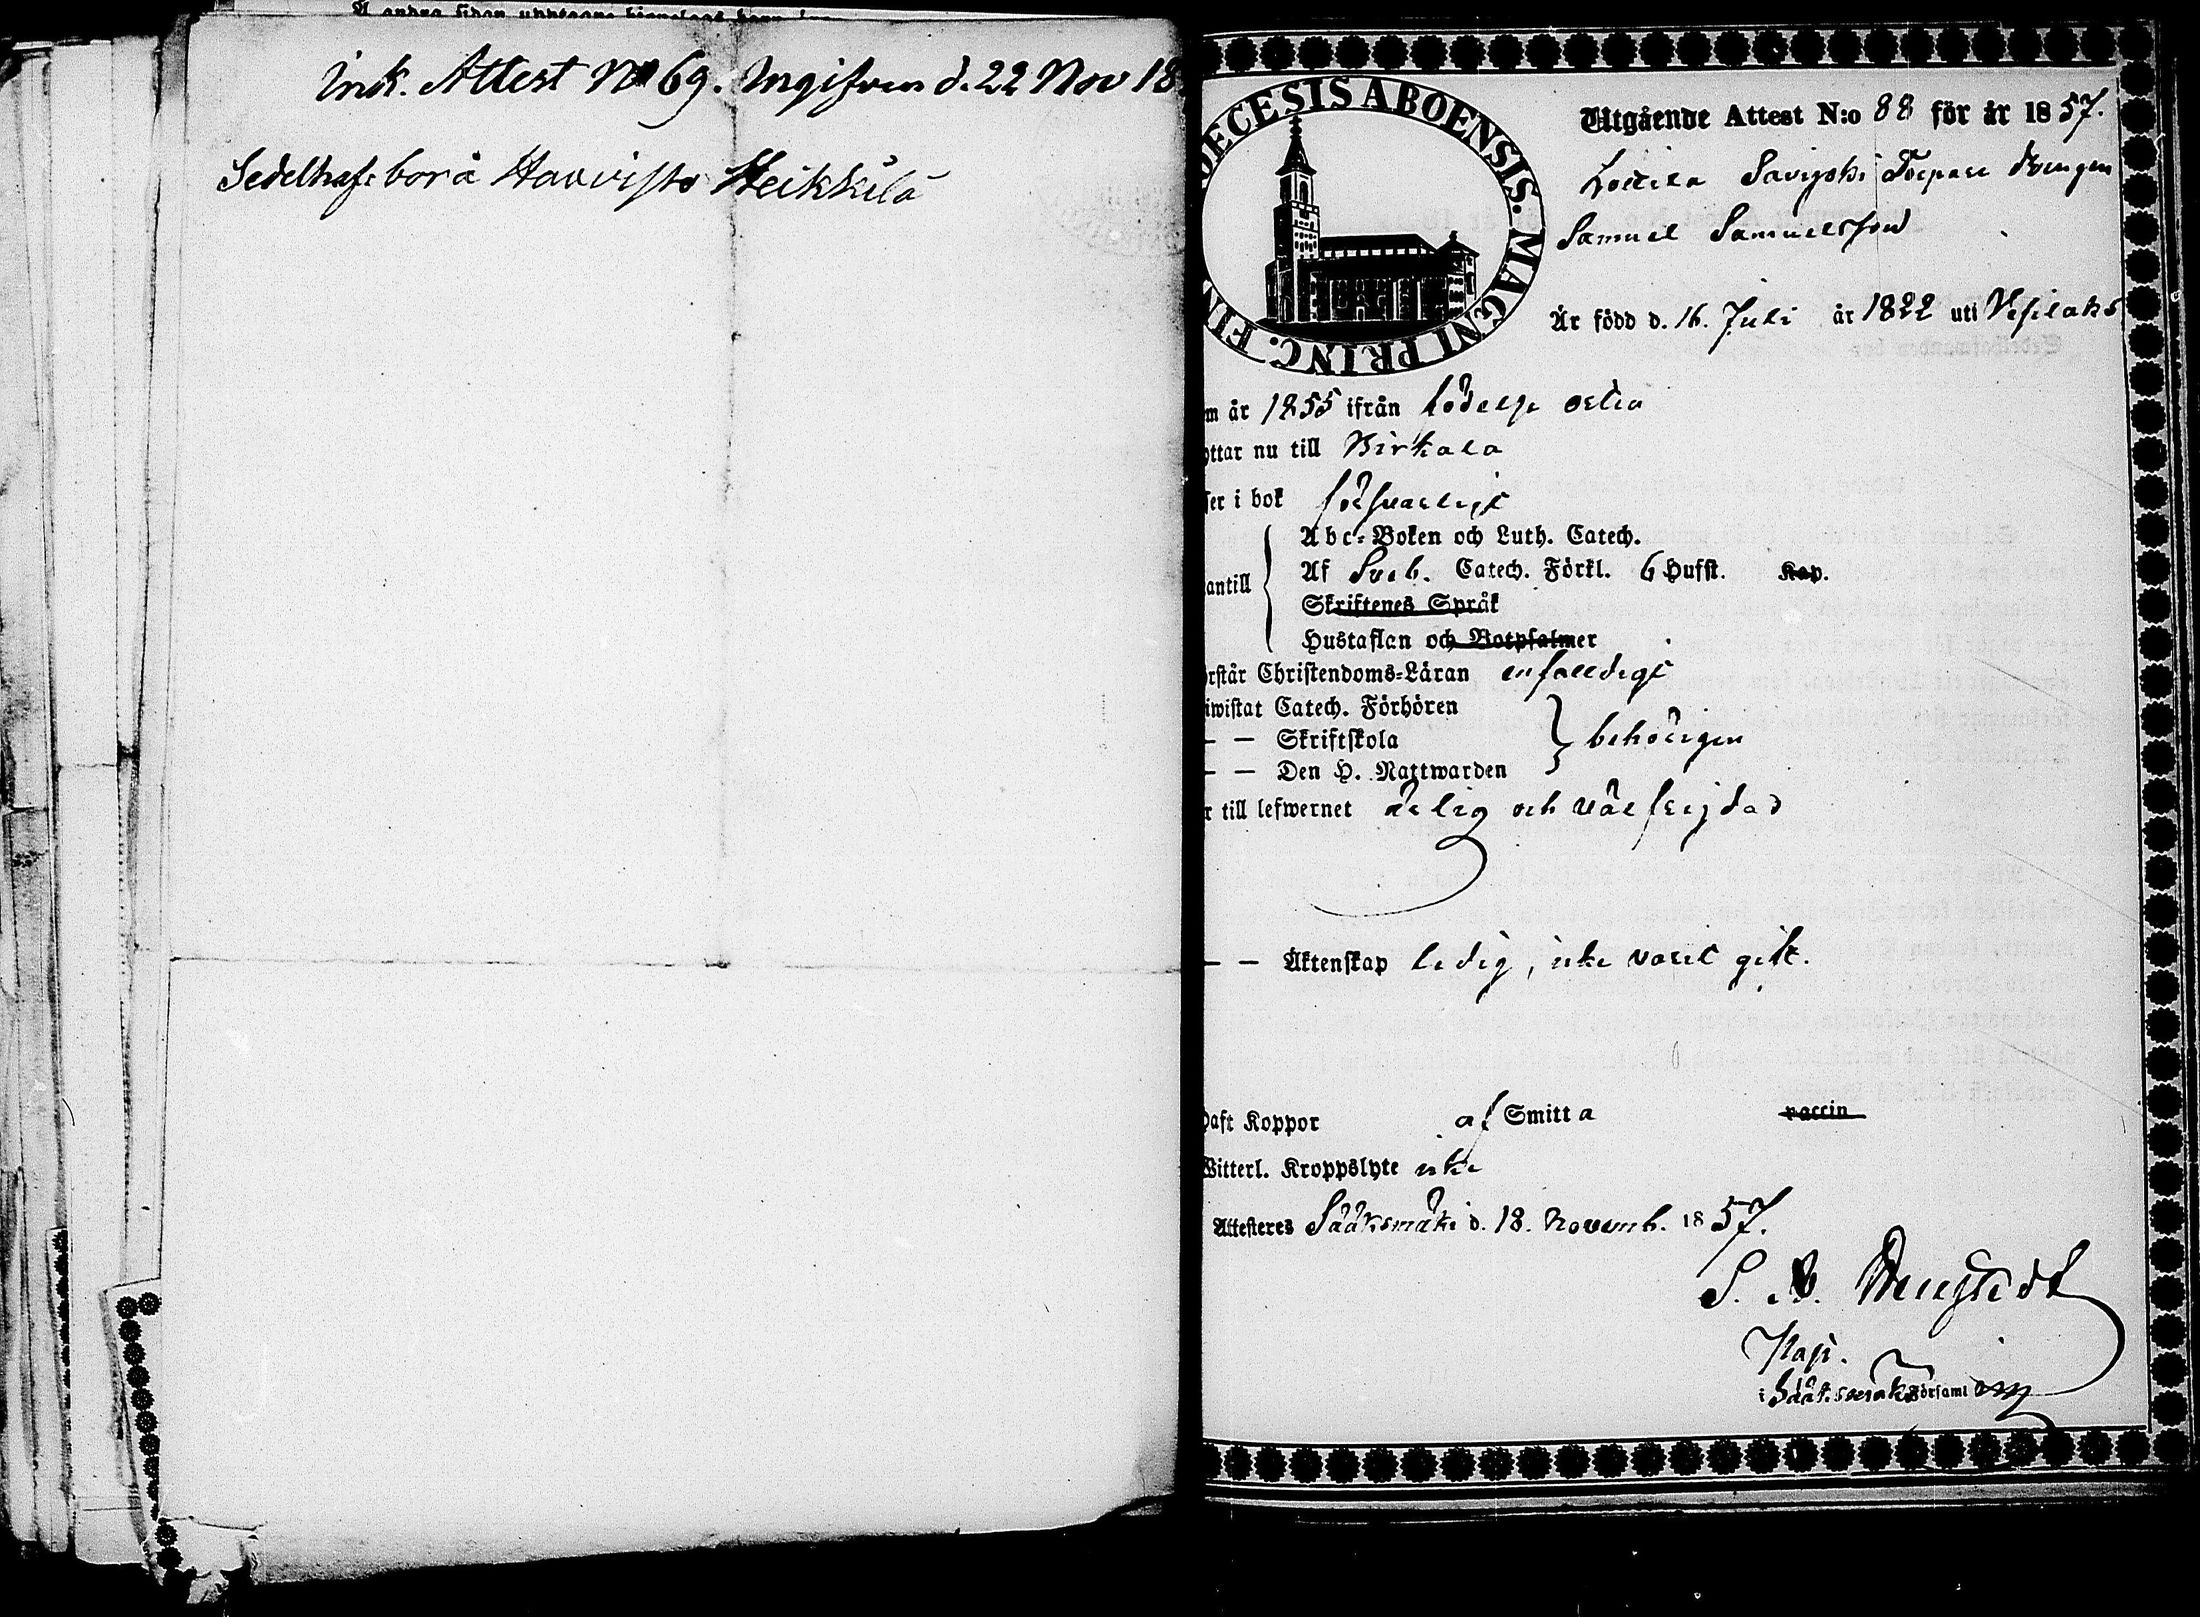 Å andra sidan upptagne
Ink. Attest No 69. Ingifven d. 22 Nov 18
Sedelhaf: bor å Haavisto Heikkilä
DIOECESIS ABOENSIS. MAGNI PRINC. FIN
Utgående Attest N:o 88 för år 1857.
Torpare drengen
Samuel Samuelsson
Är född d. 16. Juli år 1822 uti Vesilaks
m år 1855 ifrån födelse orten
yttar nu till Birkala
ser i bok försvarligt
Abc-Boken och Luth. Catech.
Af Sveb. Catech. Förkl. 6 Hufst. Kap.
antill
Skriftenes Språk
Hustaflan och Botpsalmer
rstår Christendoms-Läran enfaldigt
iwistat Catech. Förhören
— — Skriftskola behörigen
— — Den H. Nattwarden
r till lefwernet ärlig och välfrejdad
— — Äktenskap ledig, icke varit gift.
Haft Koppor af Smitta vaccin
Witterl. Kroppslyte icke
Attesteres Sääksmäki d. 18. Novemb. 1857.
Kapl.
i Sääksmäki Församl